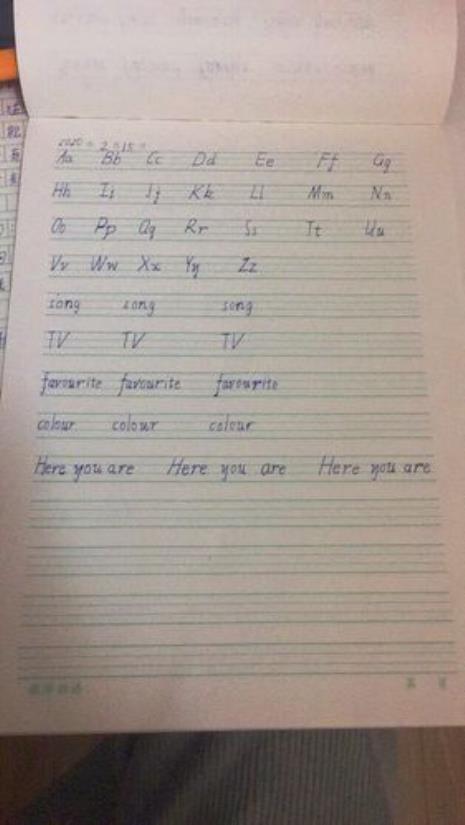 2020 2 15
Aa Bb Cc Dd Ee Ff Gg
Hh Ii Jj Kk Ll Mm Nn
Oo Pp Qq Rr Ss Tt Uu
Vv Ww Xx Yy Zz
song song song
TV TV TV
favourite favourite favourite
colour colour colour
Here you are Here you are Here you are